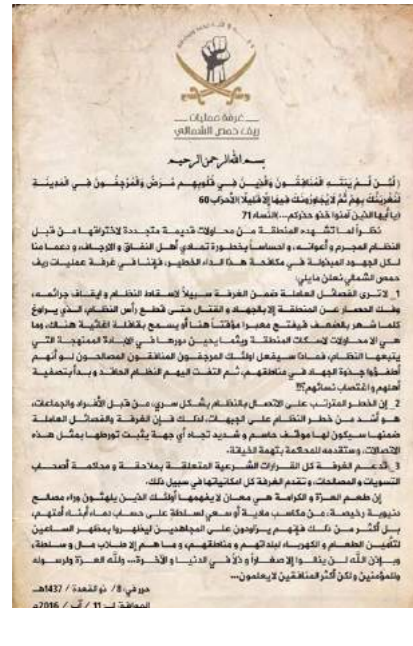 غرفة عمليات
ريف حمص الشمالي
بسم الله الرحمن الرحيم
( لَئِن لَّمْ يَنتَهِ الْمُنَافِقُونَ وَالَّذِينَ فِي قُلُوبِهِم مَّرَضٌ وَالْمُرْجِفُونَ فِي الْمَدِينَةِ
لَنُغْرِيَنَّكَ بِهِمْ ثُمَّ لَا يُجَاوِرُونَكَ فِيهَا إِلَّا قَلِيلًا )الأحزاب 60
(يا أيها الذين آمنوا خذو حذركم...)النساء 71
نظراً لما تشهده المنطقة من محاولات قديمة متجددة لاختراقها من قبل
النظام المجرم و أعوانه، و احساساً بخطورة تمادي أهل النفاق و الارجاف، ودعما منا
لكل الجهود المبذولة في مكافحة هذا الداء الخطير، فإننا في غرفة عمليات ريف
حمص الشمالي نعلن مايلي:
1_ لا ترى الفصائل العاملة ضمن الغرفة سبيلاً لاسقاط النظام و ايقاف جرائمه،
وفك الحصار عن المنطقة إلا بالجهاد و القتال حتى قطع رأس النظام، الذي يراوغ
كلما شعر بالضعف فيفتح معبرا مؤقتاً هنا أو يسمح بقافلة اغاثية هناك، وما
هي الا محاولات لاسكات المنطقة ريثما يحين دورها في الابادة الممنهجة التي
يتبعها النظام، فماذا سيفعل اولئك المرجفون المنافقون المصالحون لو أنهم
أطفؤوا جذوة الجهاد في مناطقهم، ثم التفت اليهم النظام الحاقد وبدأ بتصفية
أهلهم و اغتصاب نسائهم؟!!
2_ إن الخطر المترتب على الاتصال بالنظام بشكل سري، من قبل الأفراد والجماعات،
هو أشد من خطر النظام على الجبهات، لذلك فإن الغرفة والفصائل العاملة
ضمنها سيكون لها موقف حاسم و شديد تجاه أي جهة يثبت تورطها بمثل هذه
الاتصالات، وستقدمه للمحاكمة بتهمة الخيانة.
3_ تدعم الغرفة كل القرارات الشرعية المتعلقة بملاحقة و محاكمة أصحاب
التسويات و المصالحات، و تقدم الغرفة كل امكانياتها في سبيل ذلك.
إن طعم العزة و الكرامة هي معان لا يفهمها أولئك الذين يلهثون وراء مصالح
دنيوية رخيصة، من مكاسب مادية أو سعي لسلطة على حساب دماء أبناء أمتهم،
بل أكثر من ذلك فإنهم يزاودون على المجاهدين ليظهروا بمظهر الساعين
لتأمين الطعام و الكهرباء لبلداتهم و مناطقهم، و ما هم إلا طلاب مال و سلطة،
وبإذن الله لن ينالوا إلا صغاراً و ذلاً في الدنيا و الآخرة... ولله العزة ولرسوله
وللمؤمنين ولكن أكثر المنافقين لا يعلمون...
حرر في: 8/ ذو القعدة / 1437هـ
الموافق لـ: 11 / آب / 2016م